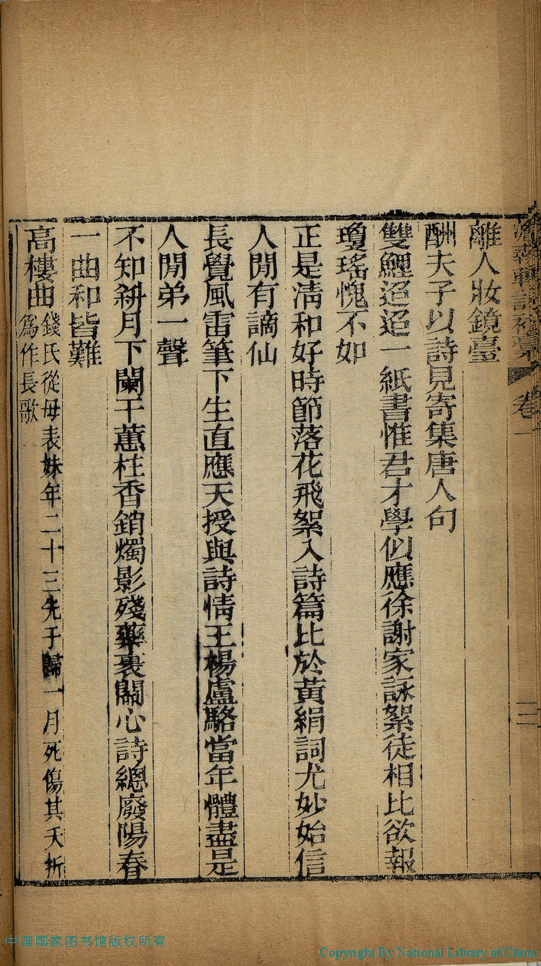 離人妝鏡臺
酬夫子以詩見寄集唐人句
雙鯉迢迢一紙書惟君才學似應徐謝家詠絮徒相比欲報
瓊瑤愧不如
正是清和好時節落花飛絮入詩篇比於黃絹詞尤妙始信
人閒有謫仙
長覺風雷筆下生直應天授與詩情王楊盧駱當年體盡是
人閒弟一聲
不知斜月下闌干蕙炷香銷燭影殘藥裹關心詩總廢陽春
一曲和皆難
高樓曲錢氏從母表妹年二十三先于歸一月死傷其夭折
爲作長歌
卷一
三
中国国家图书馆版权所有
Copyright By National Library of China